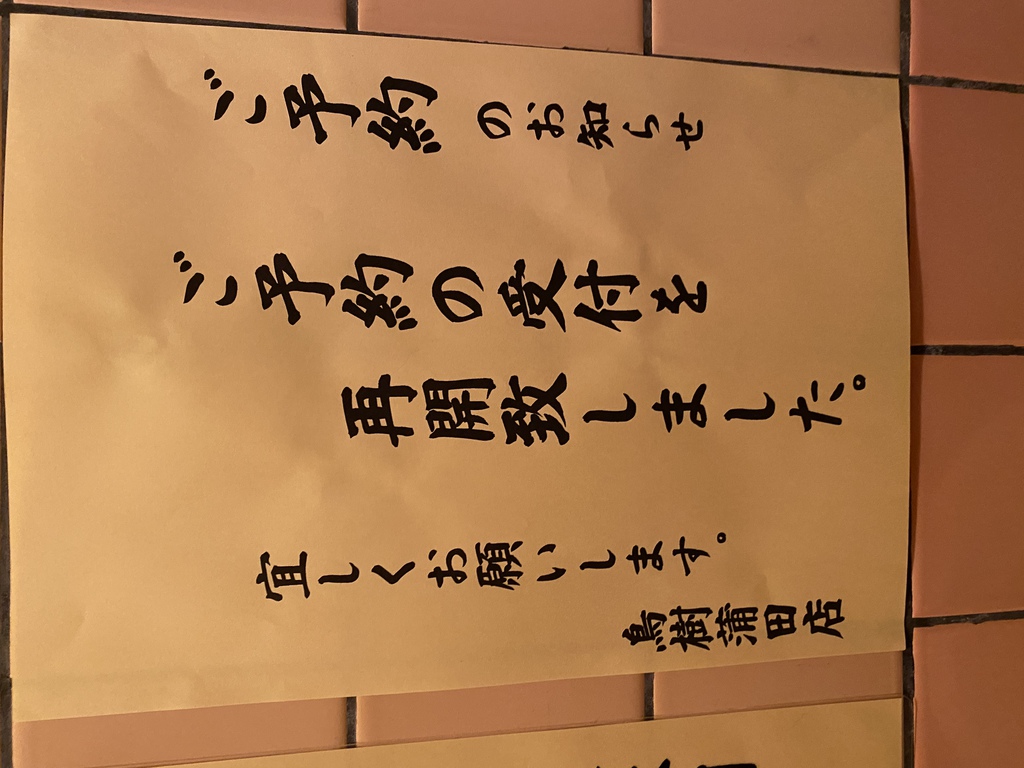 ご予約のお知らせ
ご予約の受付を
再開致しました。
宜しくお願いします。
鳥樹蒲田店